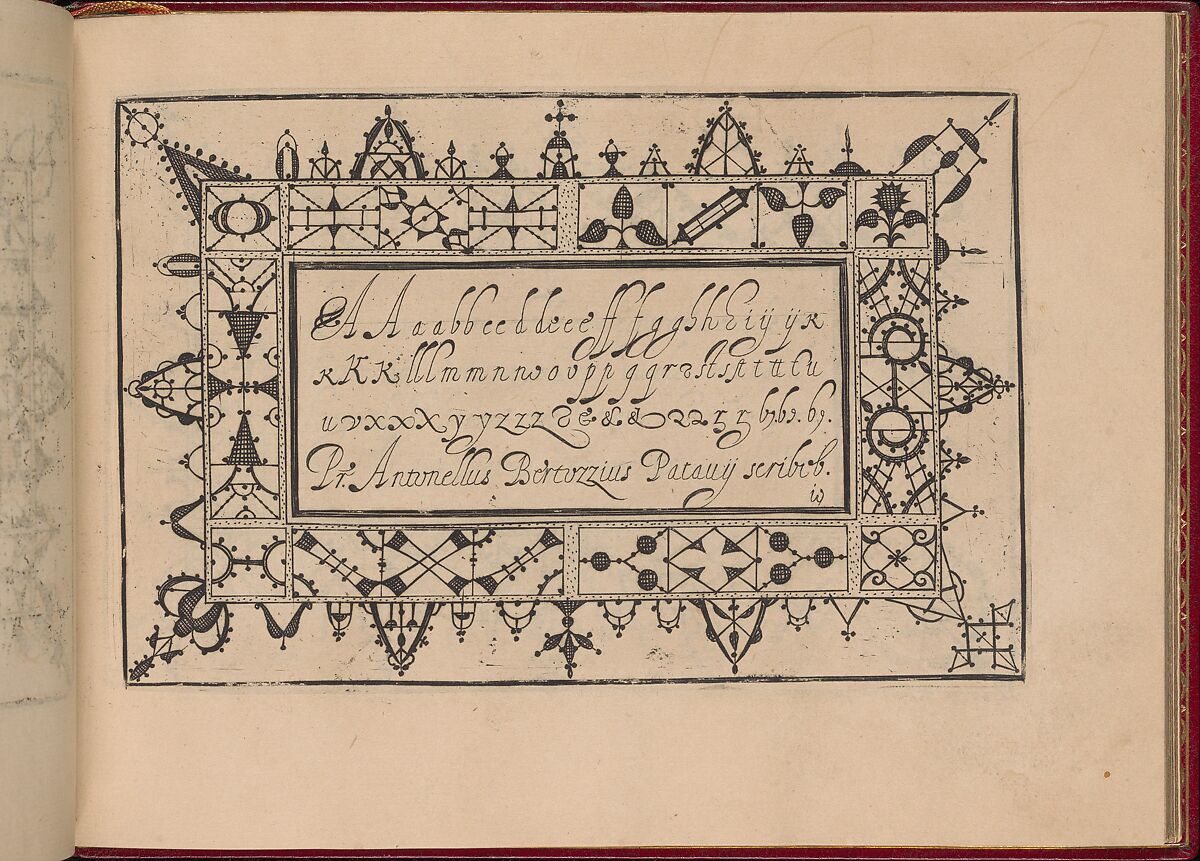 A A a a b b c c d d e e e ff f g g h h h i ij ij k
k K k lll m m n n w o v p p q q r r s st s st t t t u
u v x x X y y z z z
Pr. Antonellus Bertozzius Patauij scribeb.